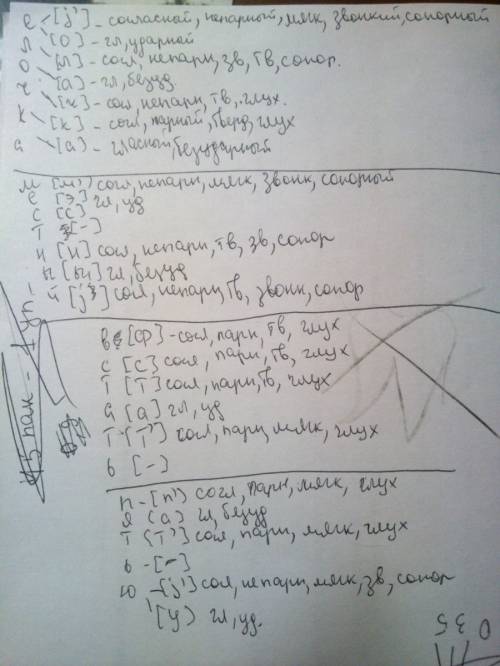 е - [j'] - согласной, непарный, мягк, звонкий, сонорный
л \ [о] - гл, ударной
о \ [л] - согл, непарн, зв, тв, сонор.
ч \ [а] - гл, безуд
к \ [к] - согл, парный, тверд, глух
а \ [а] - гласный, безударный
м [м'] согл, непарн, мягк, звонк, сонорный
е [э] гл, уд
с [с]
т [-]
н [н] согл, непарн, тв, зв, сонор
ы [ы] гл, безуд
й [j'] согл, непарн, тв, звонк, сонор
в [ф] - согл, парн, тв, глух
с [с] согл, парн, тв, глух
т [т] согл, парн, тв, глух
а [а] гл, уд
т [т'] согл, парн, мягк, глух
ь [-]
п - [п'] согл, парн, мягк, глух
я [а] гл, безуд
т [т'] согл, парн, мягк, глух
ь - [-]
ю - [j'] согл, непарн, мягк, зв, сонор
[у] гл, уд.